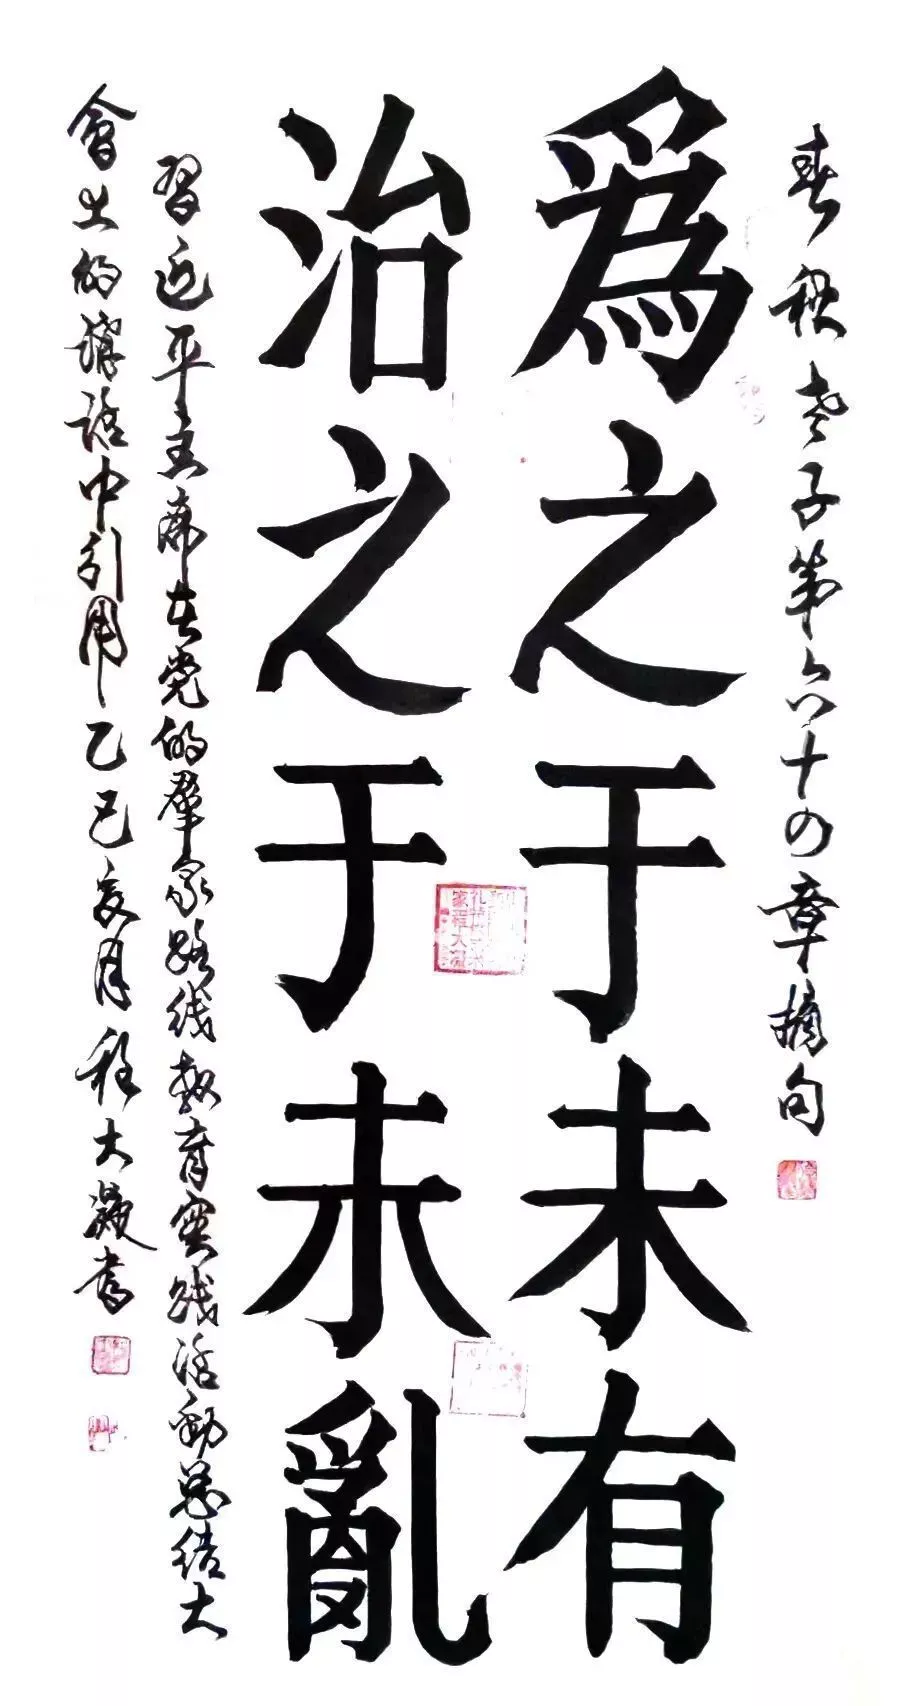 春秋老子第六十四章摘句
爲之于未有
治之于未亂
習近平主席在党的羣众路线教育实践活動总结大
會上的講話中引用乙巳月程大書